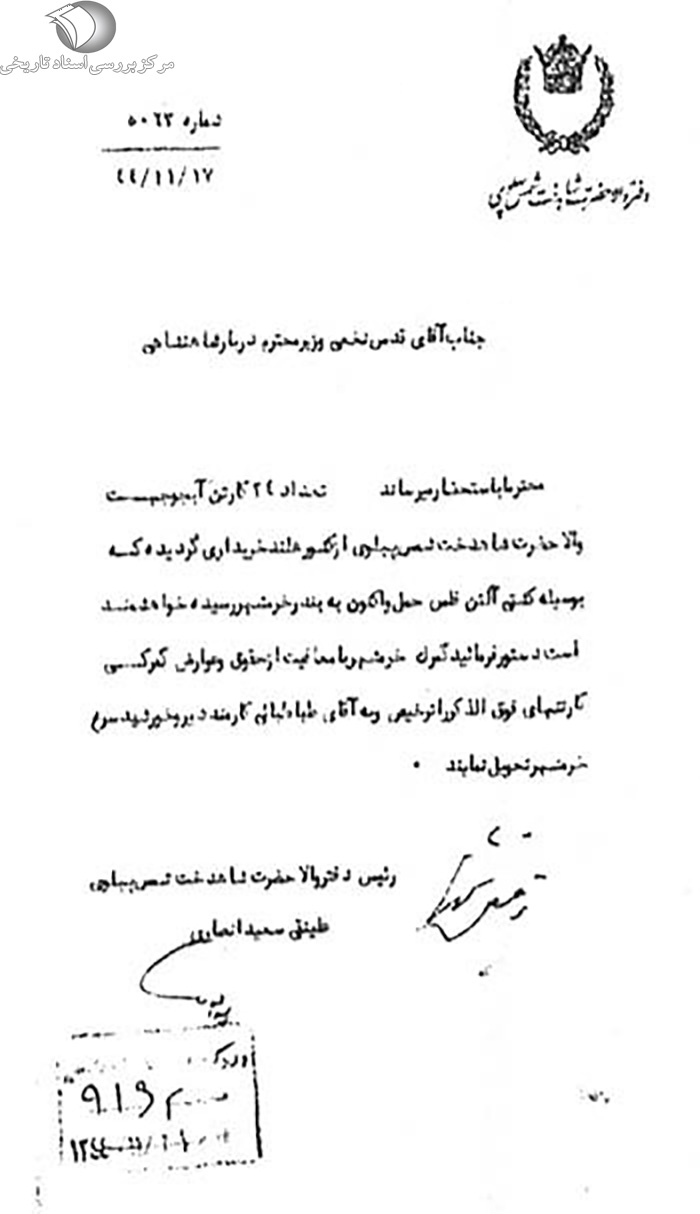 مرکز بررسی اسناد تاریخی
شماره ۵۰۶۳
۴۴/۱۱/۱۷
دفتر والاحضرت شاهدخت شمس پهلوی
جناب آقای قدس نخعی وزیر محترم دربار شاهنشاهی
محترما باستحضار میرساند تعداد ۲۴ کارتن آبجو جهت
والا حضرت شاهدخت شمس پهلوی از کشور هلند خریداری گردیده که
بوسیله کشتی آلتن فلس حمل و اکنون به بندر خرمشهر رسیده خواهشمند
است دستور فرمائید گمرک خرمشهر با معافیت از حقوق و عوارض گمرکی
کارتنهای فوق الذکر را ترخیص و به آقای طباطبائی کارمند شیر و خورشید سرخ
خرمشهر تحویل نمایند .
رئیس دفتر والا حضرت شاهدخت شمس پهلوی
سعید انصاری
۹۱۶